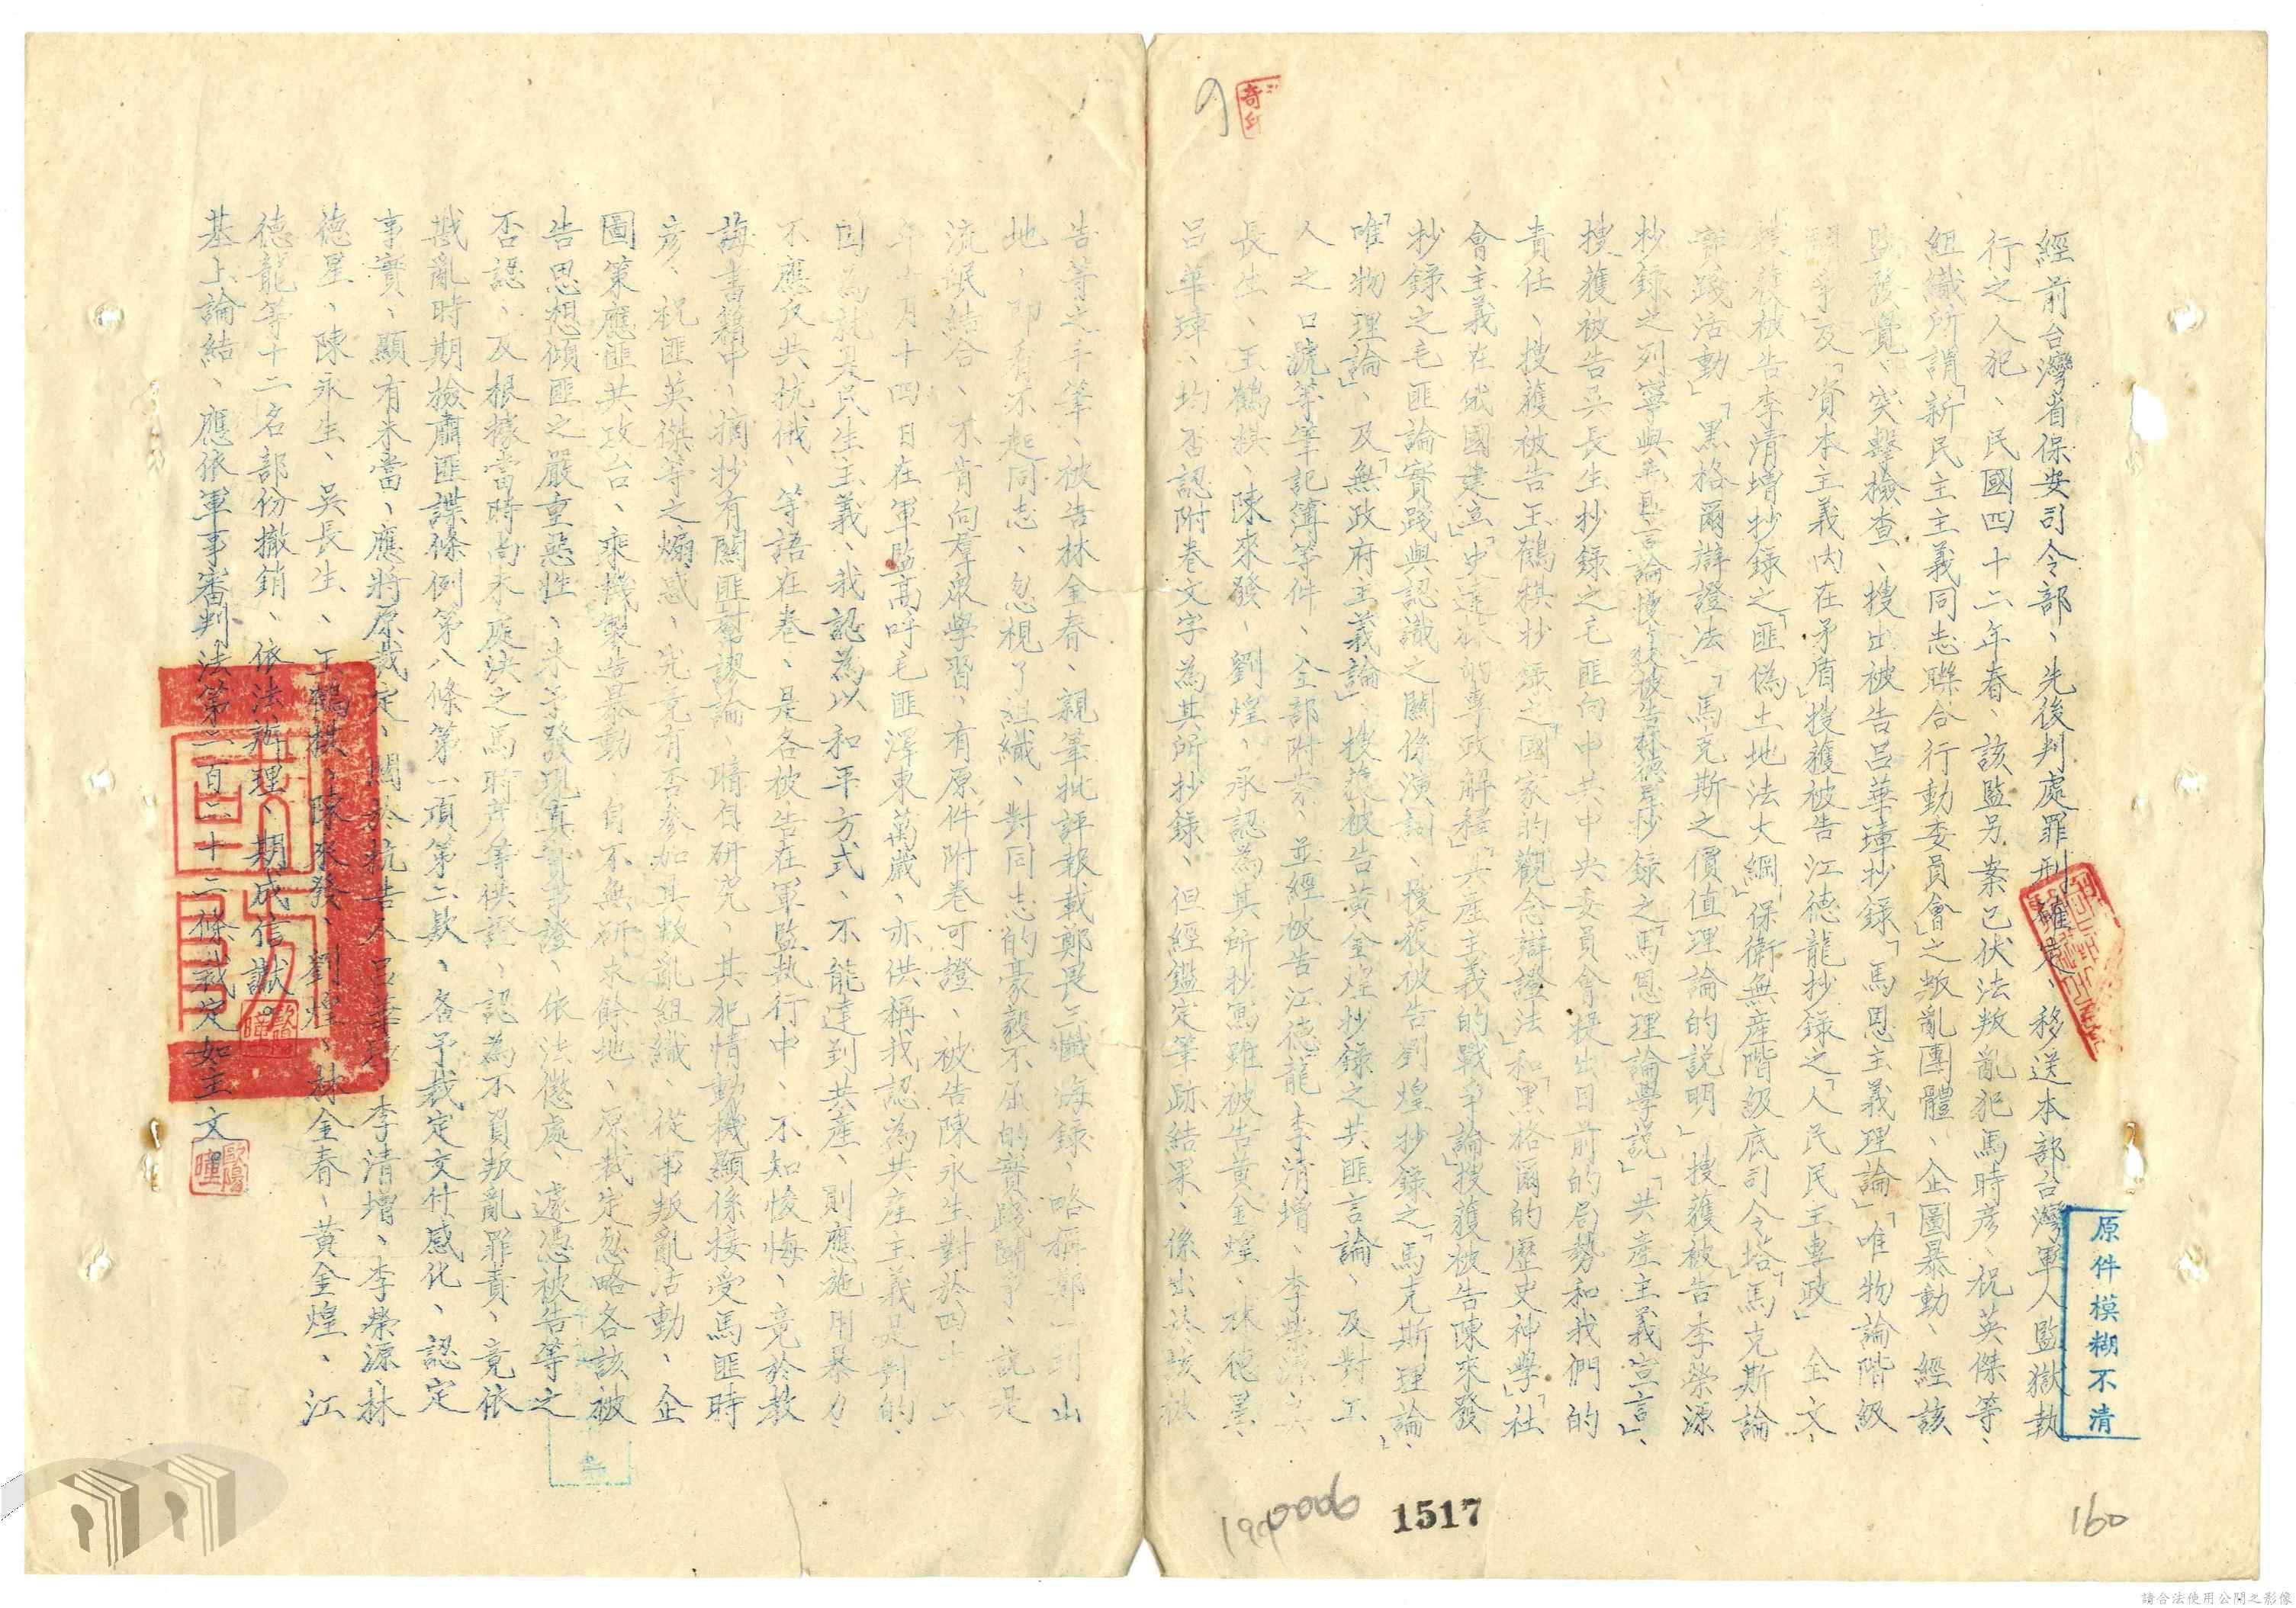 經前台灣省保安司令部、先後判處罪刑確定、移送本部台灣軍人監獄執
行之人犯、民國四十二年春、該監另案已伏法叛亂犯馬時彥、祝英傑等、
組織所謂「新民主主義同志聯合行動委員會」之叛亂團體、企圖暴動、經該
監發覺、突擊檢查、搜出被告呂華璋抄錄「馬恩主義理論」「唯物論階級
鬪爭」及「資本主義內在矛盾」搜獲被告江德龍抄錄之「人民民主專政」全文、
搜獲被告李清增抄錄之「匪偽土地法大綱」「保衛無產階級底司令塔」「馬克斯論
實踐活動」「黑格爾辯證法」「馬克斯之價值理論的說明」搜獲被告李榮源
抄錄之列寧與 言論搜獲被告林德星抄錄之「馬恩理論學說」「共產主義宣言」、
搜獲被告吳長生抄錄之毛匪向中共中央委員會提出目前的局勢和我們的
責任、搜獲被告王鶴棋抄錄之「國家的觀念辯證法」和「黑格爾的歷史神學」「社
會主義在俄國建立」「史達林的專政解釋」「共產主義的戰爭論」搜獲被告陳來發
抄錄之毛匪論實踐與認識之關係演詞、搜獲被告劉煌抄錄之「馬克斯理論」、
「唯物理論」、及「無政府主義論」、搜獲被告黃金煌抄錄之共匪言論、及對工
人之口號等筆記簿等件、全部附案、並經被告江德龍、李清增、李榮源、吳
長生、王鶴棋、陳來發、劉煌、承認為其所抄寫雖被告黃金煌、林德星、
呂華璋、均否認附卷文字為其所抄錄、但經鑑定筆跡結果、係出於該被
告等之手筆、被告林金春、親筆批評報載鄭長三懺悔錄、略稱鄭一到山
地、即看不起同志、忽視了組織、對同志的豪毅不屈的實踐鬪爭、說是
流氓結合、不肯向羣眾學習、有原件附卷可證、被告陳永生對於四十二
年十月十四日在軍監高呼毛匪澤東萬歲、亦供稱我認為共產主義是對的、
因為就是民生主義、我認為以和平方式、不能達到共產、則應施用暴力、
不應反共抗俄、等語在卷、是各被告在軍監執行中、不知悛悔、竟於教
誨書籍中、摘抄有關匪幫謬論、暗自研究、其犯情動機顯係接受馬匪時
彥、祝匪英傑等之煽惑、究竟有否參加其叛亂組織、從事叛亂活動、企
圖策應匪共攻台、乘機製造暴動、自不無研求餘地、原裁定忽略各該被
告思想傾匪之嚴重惡性、未予發現真實事證、依法懲處、遽憑被告等之
否認、及根據當時尚未處決之馬時彥等供證、認為不負叛亂罪責、竟依
戡亂時期檢肅匪諜條例第八條第一項第二款、各予裁定交付感化、認定
事實、顯有未當、應將原裁定、關於抗告人呂華璋、李清增、李榮源、林
德星、陳永生、吳長生、王鶴棋、陳來發、劉煌、林金春、黃金煌、江
德龍等十二名部份撤銷、依法辦理、期成信讞。
基上論結、應依軍事審判法第二百二十二條裁定如主文
原件模糊不清
1517
0006
160
請合法使用公開之影像